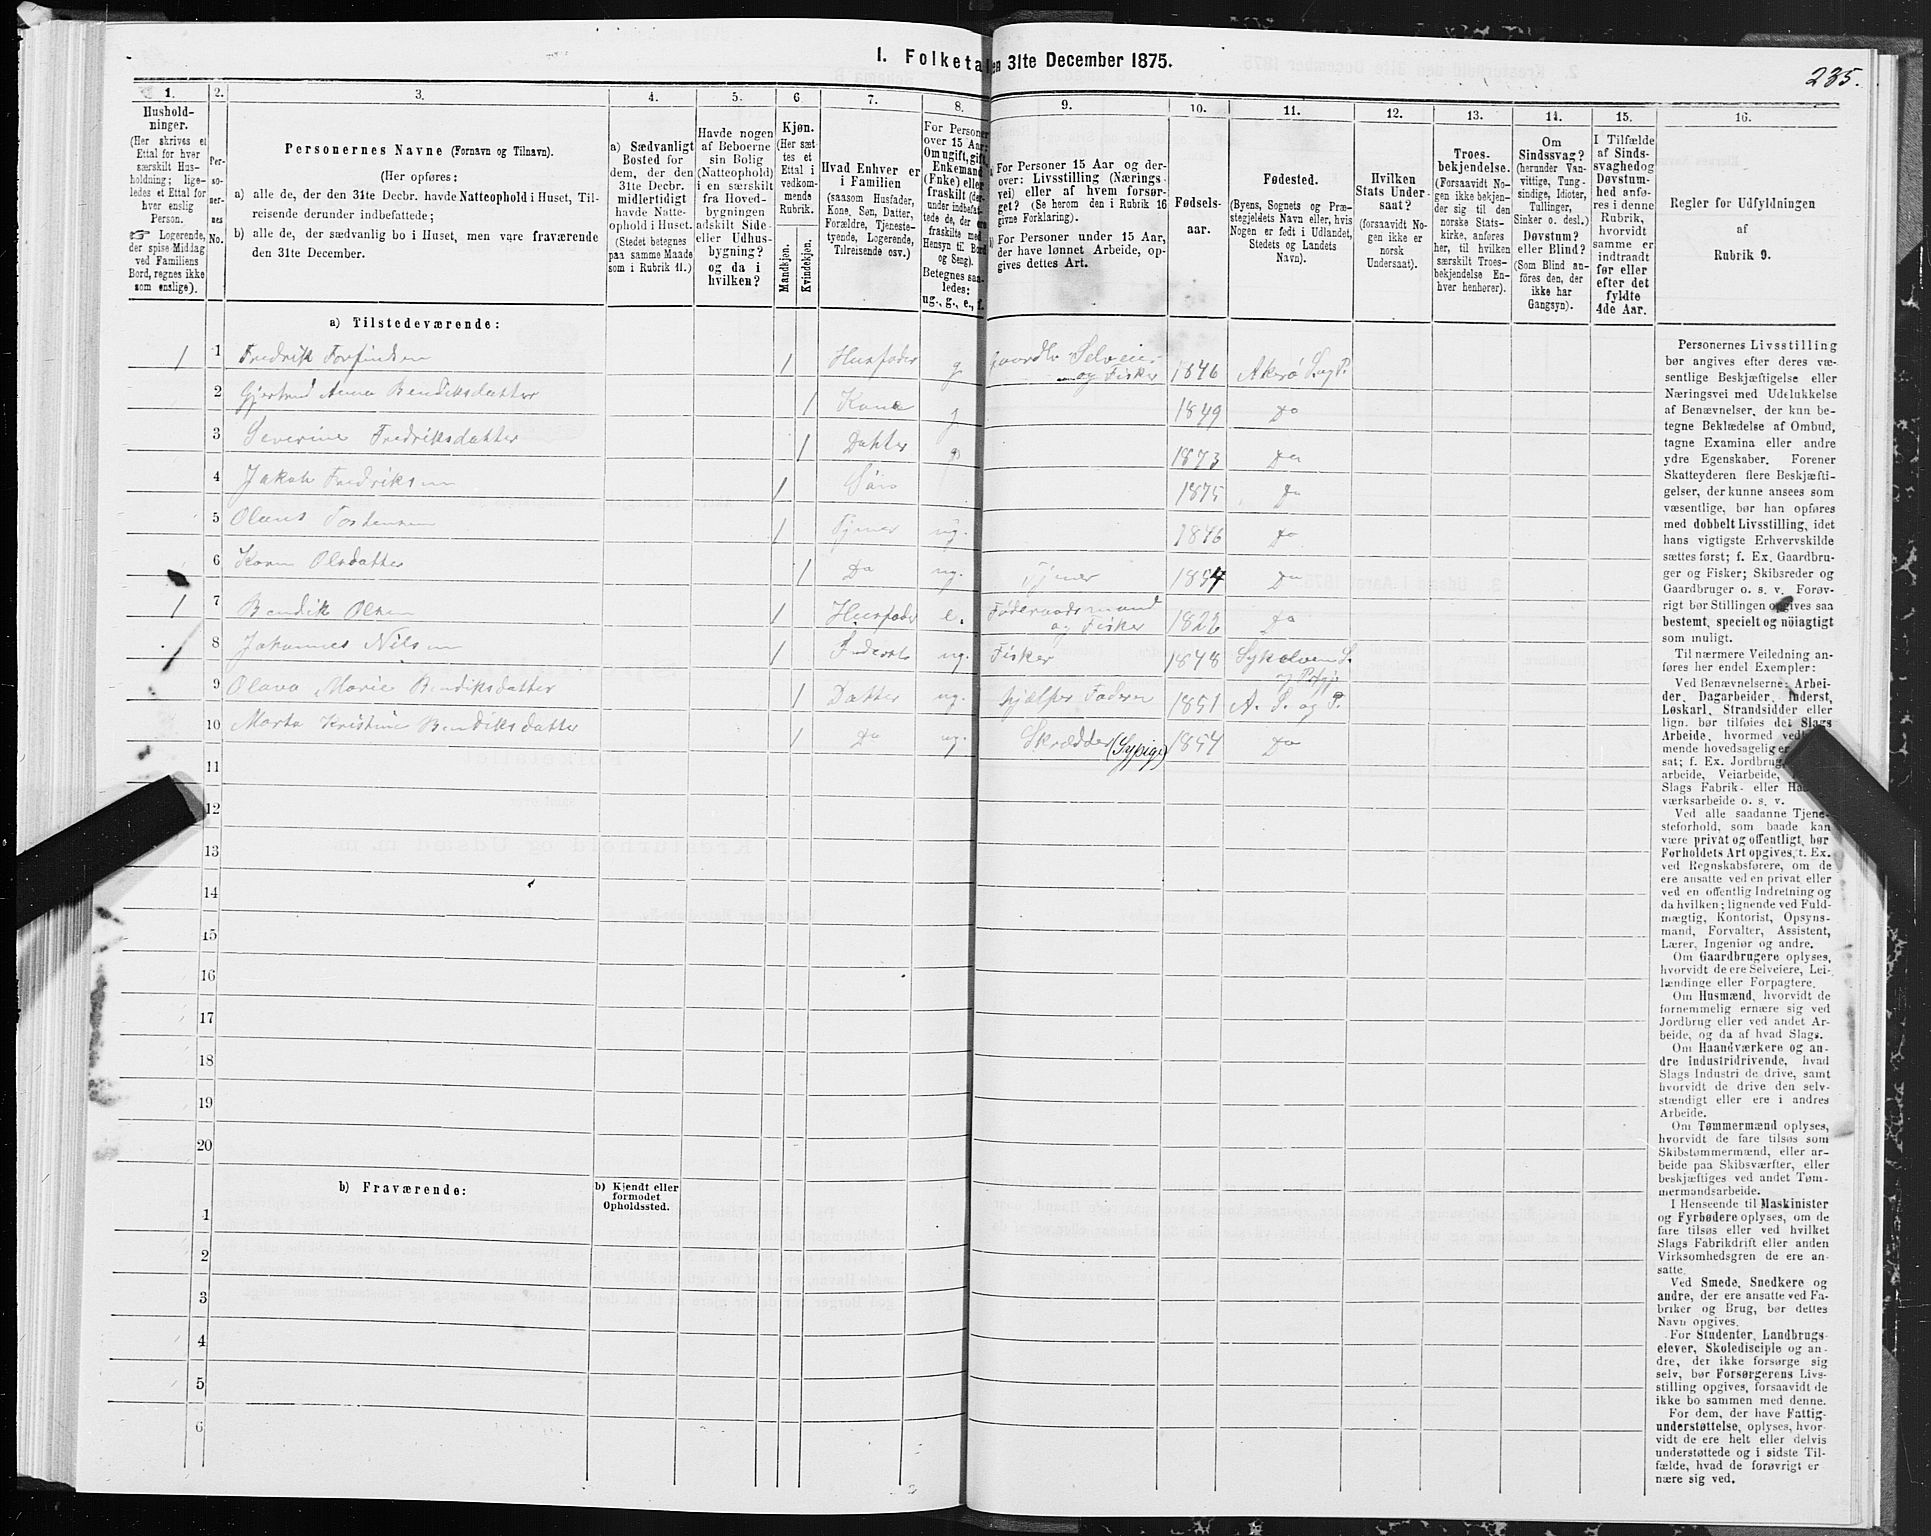 I. Folketal den 31te December 1875.
235.
1.
Hushold-
ninger.
(Her skrives et
Ettal for hver
særskilt Hus-
holdning; lige-
ledes et Ettal for
hver enslig
Person.
☞ Logerende,
der spise Middag
ved Familiens
Bord, regnes ikke
som enslige).
2.
Per-
so-
ner-
nes
No.
3.
Personernes Navne (Fornavn og Tilnavn).
(Her opføres:
a) alle de, der den 31te Decbr. havde Natteophold i Huset, Til-
reisende derunder indbefattede;
b) alle de, der sædvanlig bo i Huset, men vare fraværende
den 31te December.
4.
a) Sædvanligt
Bosted for
dem, der den
31te Decbr.
midlertidigt
havde Natte-
ophold i Huset.
(Stedet betegnes
paa samme Maade
som i Rubrik 11.)
5.
Havde nogen
af Beboerne
sin Bolig
(Natteophold)
i en særskilt
fra Hoved-
bygningen
adskilt Side-
eller Udhus-
bygning?
og da i
hvilken?
6
Kjøn.
(Her sæt-
tes et
Ettal i
vedkom-
mende
Rubrik.
Mandkjøn.
Kvindekjøn.
7.
Hvad Enhver er
i Familien
(saasom Husfader,
Kone, Søn, Datter,
Forældre, Tjeneste-
tyende, Logerende,
Tilreisende osv.)
8.
For Personer
over 15 Aar:
Om ugift, gift,
Enkemand
(Enke) eller
fraskilt (der-
under indbefat-
tede de, der ere
fraskilte med
Hensyn til Bord
og Seng).
Betegnes saa-
ledes:
ug., g., e., f.
9.
a) For Personer 15 Aar og der-
over: Livsstilling (Nærings-
vei) eller af hvem forsør-
get? (Se herom den i Rubrik 16
givne Forklaring).
b) For Personer under 15 Aar,
der have lønnet Arbeide, op-
gives dettes Art.
10.
Fødsels-
aar.
11.
Fødested.
(Byens, Sognets og Præ-
stegjeldets Navn eller, hvis
Nogen er født i Udlandet,
Stedets og Landets
Navn).
12.
Hvilken
Stats Under-
saat?
(forsaavidt No-
gen ikke er
norsk
Undersaat).
13.
Troes-
bekjendelse.
(Forsaavidt No-
gen ikke bekjen-
der sig til den
norske Stats-
kirke, anføres
her, til hvilken
særskilt Troes-
bekjendelse En-
hver henhører).
14.
Om
Sindssvag?
(herunder Van-
vittige, Tung-
sindige, Idioter,
Tullinger,
Sinker o. desl.)
Døvstum?
eller Blind?
(Som Blind an-
føres den, der
ikke har
Gangsyn).
15.
I Tilfælde
af Sinds-
svaghed og
Døvstum-
hed anfø-
res i denne
Rubrik,
hvorvidt
samme er
indtraadt
før eller
efter det
fyldte
4de Aar.
16.
Regler for Udfyldningen
af
Rubrik 9.
a) Tilstedeværende:
1 1 Fredrik Torfindsen 1 Husfader g Gaardbr Selveier og Fisker 1846 Akerø S. og P.
2 Gjertrud Anna Bendiksdatter 1 Kone g 1849 Do
3 Severine Fredriksdatter 1 Datter 1873 Do
4 Jakob Fredriksen 1 Søn 1875 Do
5 Olaus Tostensen 1 Tjener ug. 1846 Do
6 Karen Olsdatter 1 Do ug. Tjener 1854 Do
1 7 Bendik Olsen 1 Husfader e. Føderaadsmand og Fisker 1822 Do
8 Johannes Nilsen 1 Inderst ug. Fisker 1848 Sykelven S. og Prgj
9 Olava Marie Bendiksdatter 1 Datter ug. hjælper Faderen 1851 A. S. og P.
10 Marta Kristine Bendiksdatter 1 Do ug. Skrædder (Sypige) 1854 Do
11
12
13
14
15
16
17
18
19
20
b) Fraværende:
b) Kjendt eller
formodet
Opholdssted.
1
2
3
4
5
6
Personernes Livsstilling
bør angives efter deres væ-
sentlige Beskjæftigelse eller
Næringsvei med Udelukkelse
af Benævnelser, der kun be-
tegne Beklædelse af Ombud,
tagne Examina eller andre
ydre Egenskaber. Forener
Skatteyderen flere Beskjæfti-
gelser, der kunne ansees som
væsentlige, bør han opføres
med dobbelt Livsstilling, idet
hans vigtigste Erhvervskilde
sættes først; f. Ex. Gaardbru-
ger og Fisker; Skibsreder og
Gaardbruger o. s. v. Forøv-
rigt bør Stillingen opgives saa
bestemt, specielt og nöiagtigt
som muligt.
Til nærmere Veiledning an-
føres her endel Exempler:
Ved Benævnelserne: Arbei-
der, Dagarbeider, Inderst,
Løskarl, Strandsidder eller
lign. bør tilføies det Slags
Arbeide, hvormed ved
mende hovedsagelig er
sat; f. Ex. Jordbrug,
arbeide, Veiarbeide,
Slags Fabrik- eller Haand-
værksarbeide o. s. v.
Ved alle saadanne Tjene-
steforhold, som baade kan
være privat og offentligt, bør
Forholdets Art opgives, t. Ex.
ved Regnskabsførere, om de
ere ansatte ved en privat eller
ved en offentlig Indretning og
da hvilken; lignende ved Fuld-
mægtig, Kontorist, Opsyns-
mand, Forvalter, Assistent,
Lærer, Ingeniør og andre.
Om Gaardbrugere oplyses,
hvorvidt de ere Selveiere, Lei-
lændinge eller Forpagtere.
Om Husmænd, hvorvidt de
fornemmelig ernære sig ved
Jordbrug eller ved andet Ar-
beide, og da af hvad Slags.
Om Haandværkere og an-
dre Industridrivende, hvad
Slags Industri de drive, samt
hvorvidt de drive den selv-
stændigt eller ere i andres
Arbeide.
Om Tømmermænd oplyses,
hvorvidt de fare tilsøs som
Skibstømmermænd, eller ar-
beide paa Skibsværfter, eller
beskjæftiges ved andet Tøm-
mermandsarbeide.
I Henseende til Maskinister
og Fyrbødere oplyses, om de
fare tilsøs eller ved hvilket
Slags Fabrikdrift eller anden
Virksomhedsgren de ere an-
satte.
Ved Smede, Snedkere og
andre, der ere ansatte ved Fa-
briker og Brug, bør dettes
Navn opgives.
For Studenter, Landbrugs-
elever, Skoledisciple og an-
dre, der ikke forsørge sig
selv, bør Forsørgerens Livs-
stilling opgives, forsaavidt de
ikke bo sammen med denne.
For dem, der have Fattig-
understøttelse, oplyses, hvor-
vidt de ere helt eller delvis
understøttede og i sidste Til-
fælde, hvad de forøvrigt er-
nære sig ved.